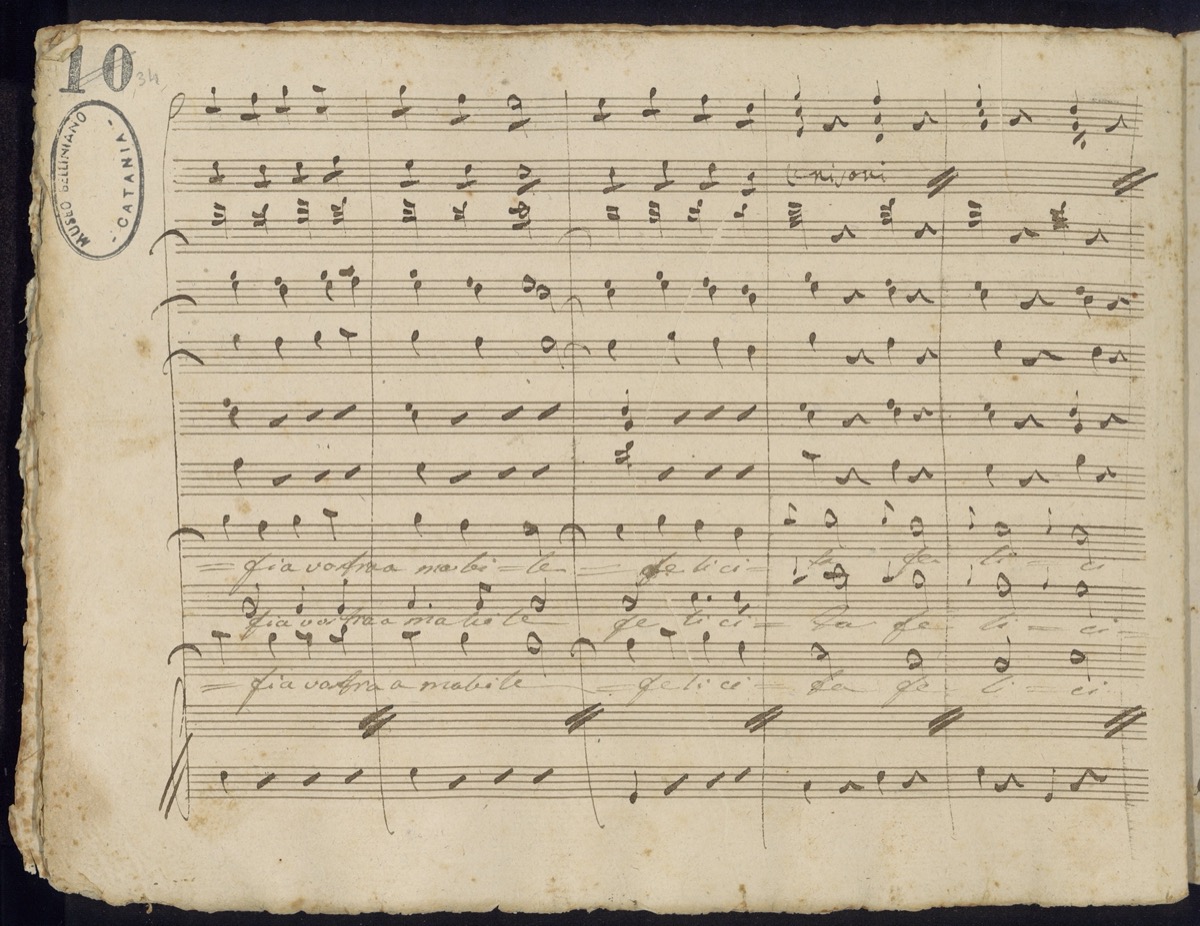 10
34
MUSEO BELLINIANO
- CATANIA -
Unisoni
= fia vostra a mabi = le = felici = ta fe li = ci
fia vostra a mabile fe li ci = ta fe li = ci =
= fia vostra a mabile = felici = ta fe li = ci